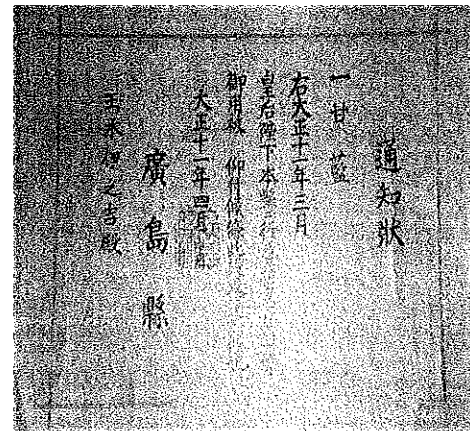 通知狀
一甘藍
右大正十一年三月
皇后陛下本縣行
御用被仰付候
大正十一年四月
廣島縣
玉木之吉殿